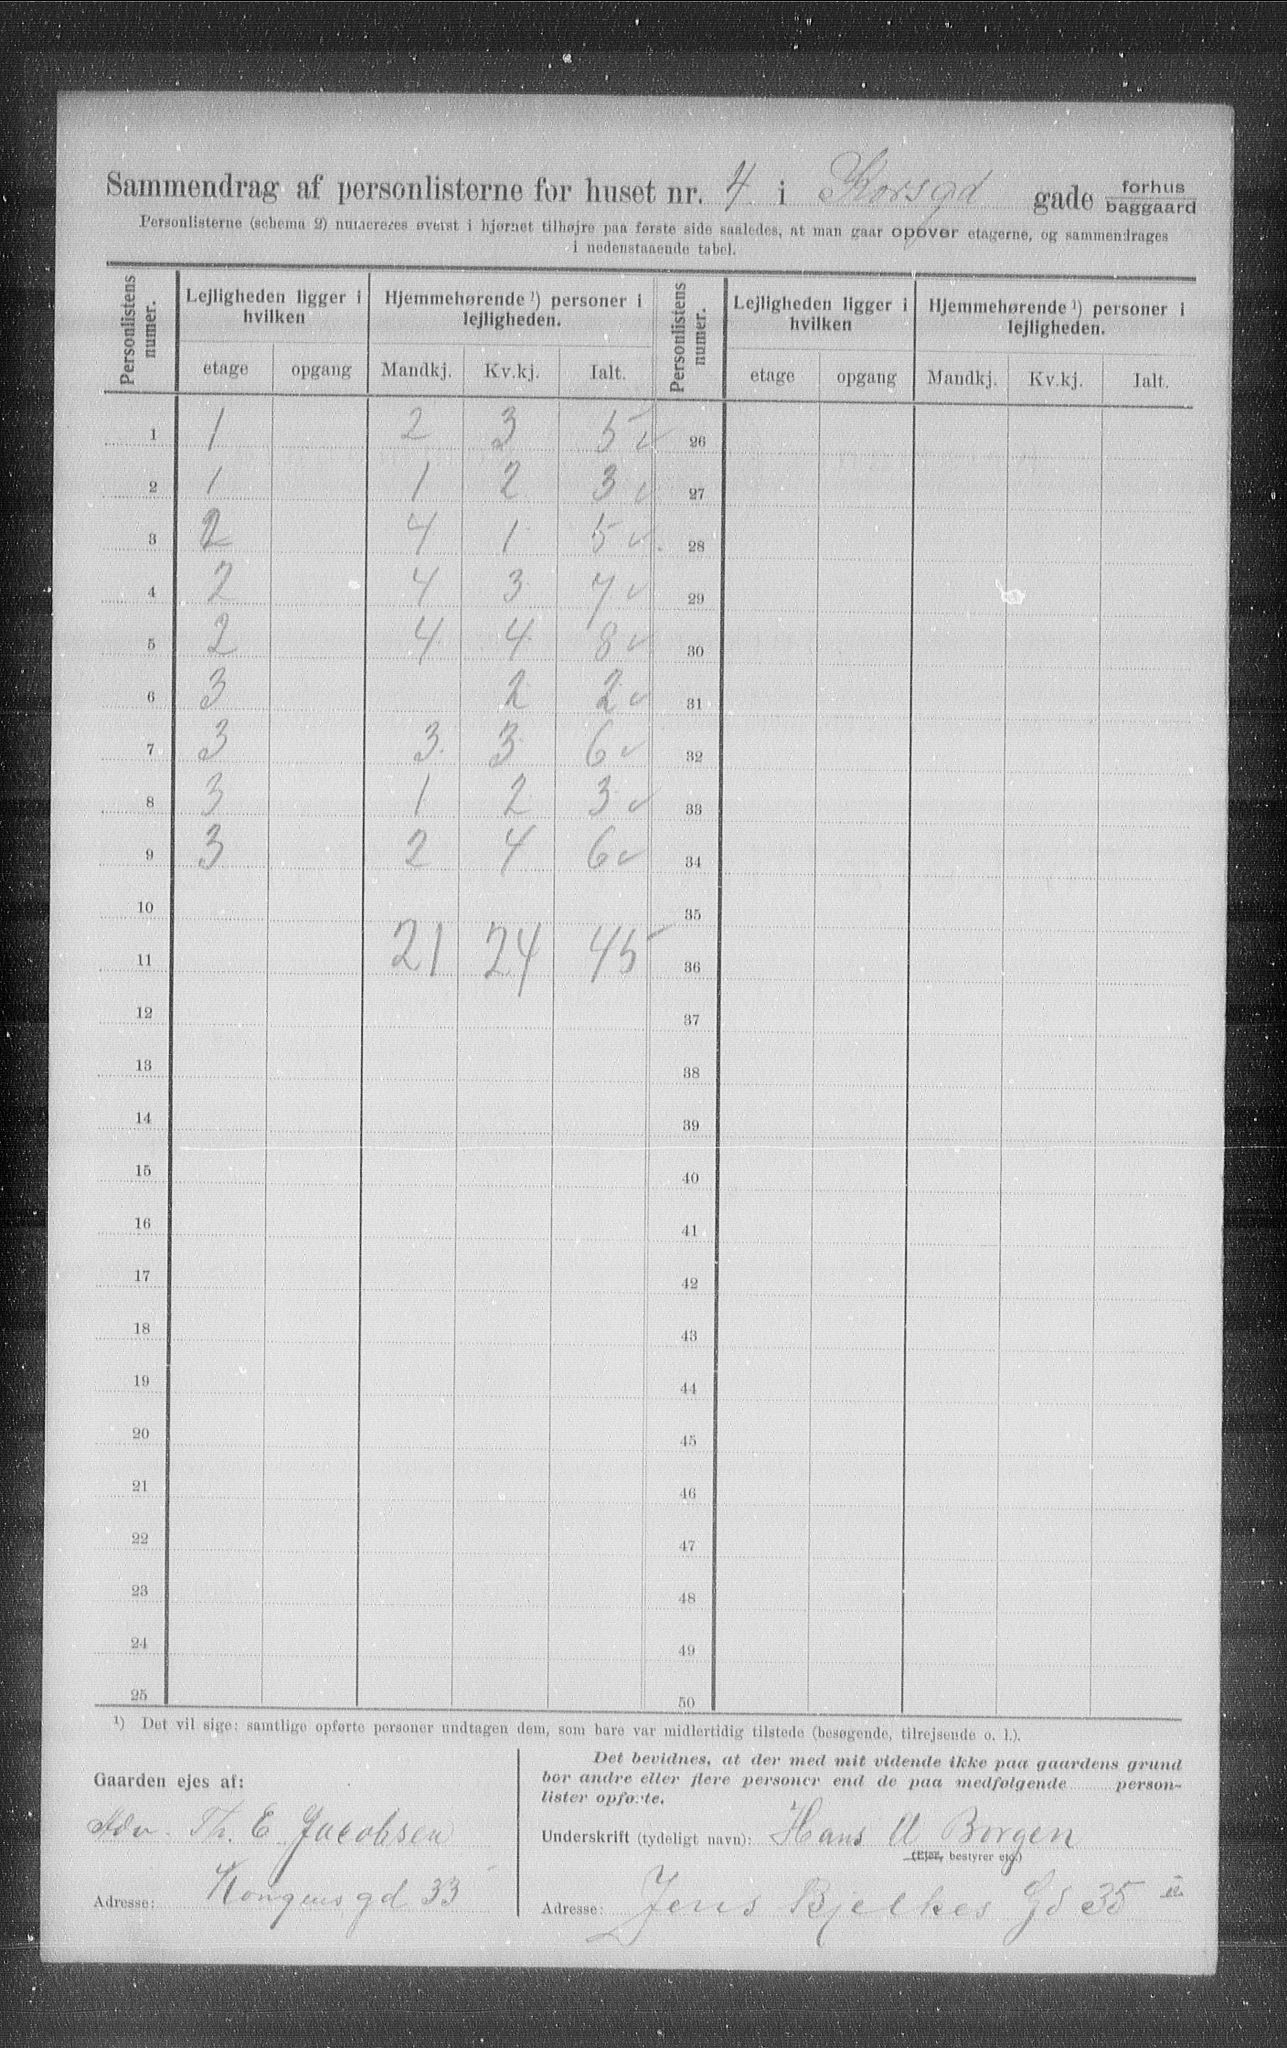 Sammendrag af personlisterne for huset nr. 4 i Korsgd gade forhus baggaard
Personlisterne (schema 2) numereres øverst i hjørnet tilhøjre paa første side saaledes, at man gaar opover etagerne, og sammendrages
i nedenstaaende tabel.
Personlistens numer. Lejligheden ligger i hvilken Hjemmehørende ¹) personer i lejligheden. Personlistens numer. Lejligheden ligger i hvilken Hjemmehørende ¹) personer i lejligheden.
etage opgang Mandkj. Kv.kj. Ialt. etage opgang Mandkj. Kv.kj. Ialt.
1 1 2 3 5 ✓ 26
2 1 1 2 3 ✓ 27
3 2 4 1 5 ✓ 28
4 2 4 3 7 ✓ 29
5 2 4 4 8 ✓ 30
6 3 2 2 ✓ 31
7 3 3 3 6 ✓ 32
8 3 1 2 3 ✓ 33
9 3 2 4 6 ✓ 34
10 35
11 21 24 45 36
12 37
13 38
14 39
15 40
16 41
17 42
18 43
19 44
20 45
21 46
22 47
23 48
24 49
25 50
¹) Det vil sige: samtlige opførte personer undtagen dem, som bare var midlertidig tilstede (besøgende, tilrejsende o. l.).
Gaarden ejes af:
Adv. Th. E. Jacobsen
Adresse: Kongensgd 33
Det bevidnes, at der med mit vidende ikke paa gaardens grund
bor andre eller flere personer end de paa medfølgende person-
lister opførte.
Underskrift (tydeligt navn): Hans A Borgen
(Ejer, bestyrer etc.)
Adresse: Jens Bjelkes Gd 35 II